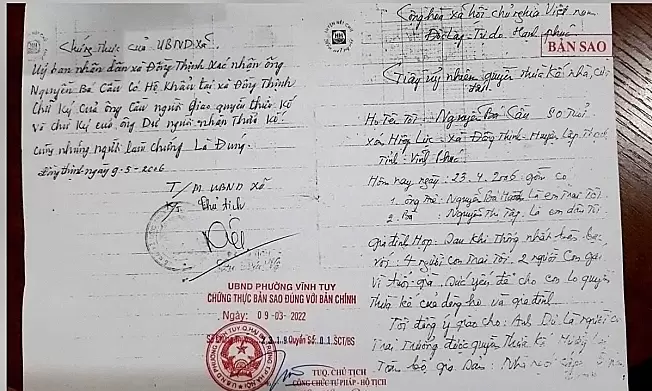 Chứng thực của UBND xã
Uỷ ban nhân dân xã Đồng Thịnh xác nhận ông
Nguyễn Bá Cầu có Hộ Khẩu tại xã Đồng Thịnh
chữ ký của ông Cầu người giao quyền thừa kế
và chữ ký của ông Dư người nhận thừa kế
cùng những người làm chứng Là Đúng.
Đồng thịnh ngày 9-5-2006
T/M UBND xã
Chủ tịch
UBND PHƯỜNG VĨNH TUY
CHỨNG THỰC BẢN SAO ĐÚNG VỚI BẢN CHÍNH
Ngày: 09-03-2022
Quyển Số: 01 SCT/BS
TUQ. CHỦ TỊCH
CÔNG CHỨC TƯ PHÁP - HỘ TỊCH
Cộng hòa xã hội chủ nghĩa Việt nam
Độc Lập - Tự do - Hạnh phúc
BẢN SAO
Giấy uỷ nhiệm quyền thừa kế nhà,
Họ Tên Tôi: Nguyễn Bá Cầu 80 Tuổi
xóm Hiệp Lực - xã Đồng Thịnh - Huyện Lập Thạch
Tỉnh - Vĩnh Phúc
Hôm nay ngày: 23.4.2006 gồm có
1. ông Nguyễn Bá Là em Trai Tôi
2. Bà Nguyễn Thị Tập. Là em dâu Tôi
gia đình Họp. Sau Khi Thống nhất
với: 4 người con Trai Tôi. 2 người Con gái
Vì tuổi già. Sức yếu, để cho con lo quyền
Thừa kế của dòng họ và gia đình
Tôi đồng ý giao cho: Anh Dư Là người con
Trai Trưởng được quyền Thừa Kế